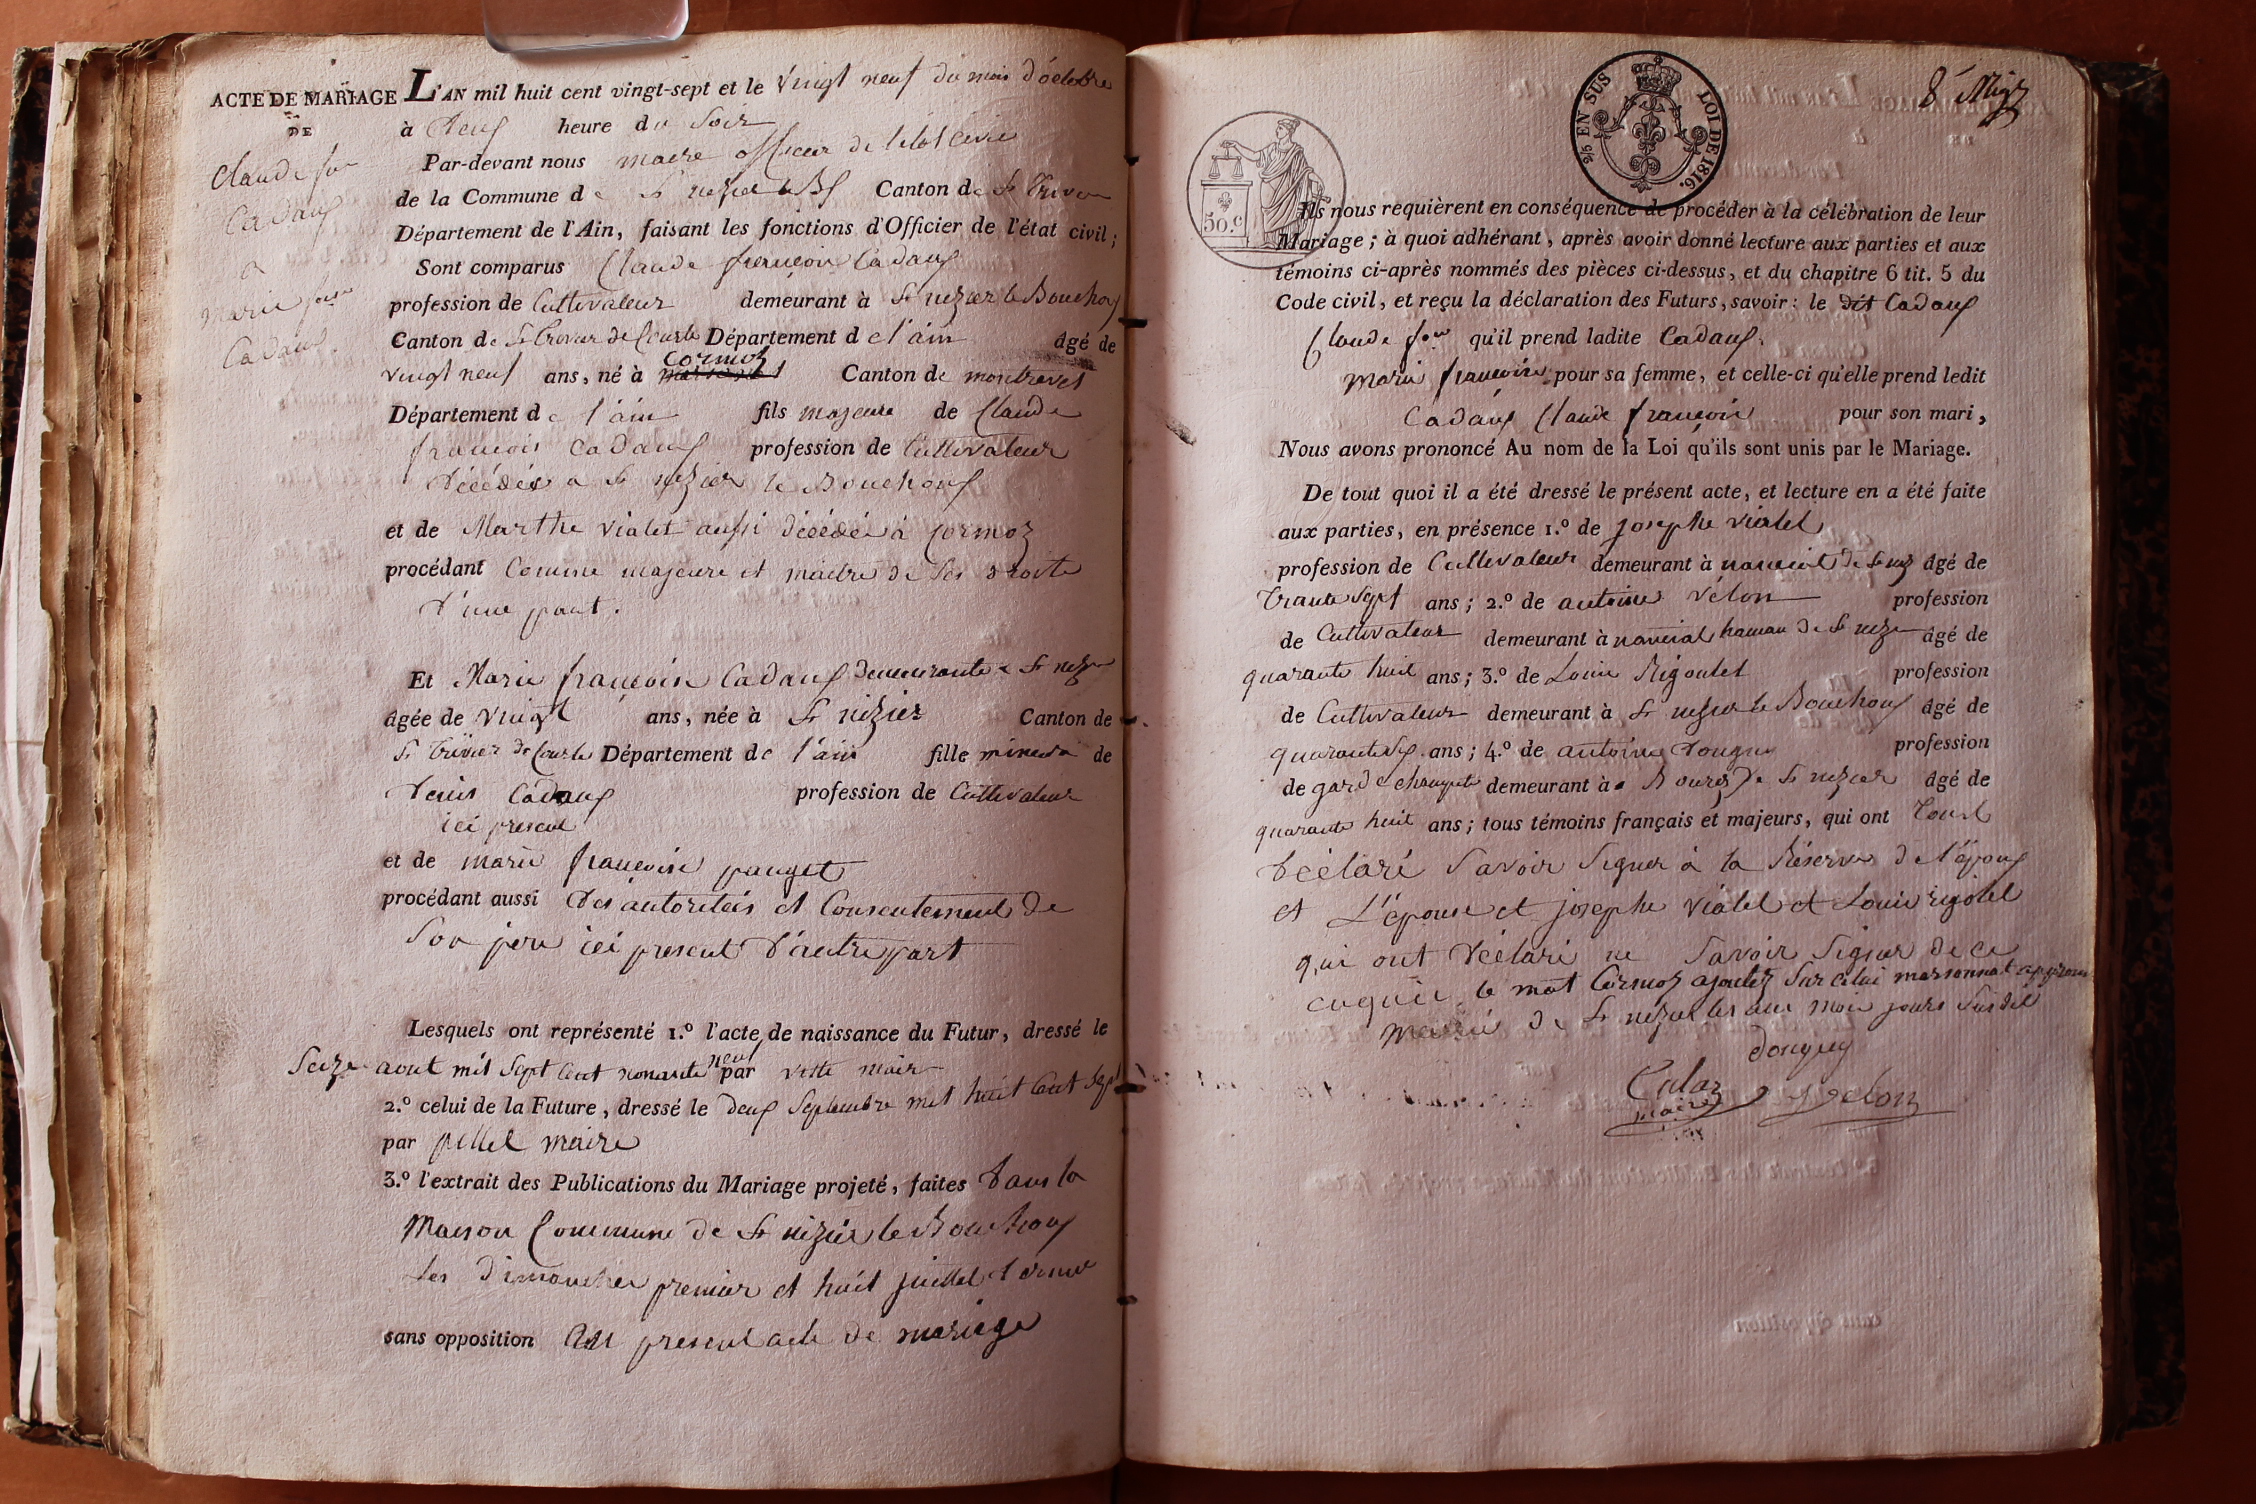 ACTE DE MARIAGE
DE
Claude f.çois
Cadaux
a
Marie f.çoise
Cadaux
L'AN mil huit cent vingt-sept et le vingt neuf du mois d'octobre
à Deux heure du Soir
Par-devant nous maire officier de l'état Civil
de la Commune de St nizier le Bx Canton de St Trivier
Département de l'Ain, faisant les fonctions d'Officier de l'état civil;
Sont comparus Claude francois Cadaux
profession de Cultivateur demeurant à St nizier le Bouchoux
Canton de St Trivier de Courte Département de l'ain âgé de
vingt neuf ans, né à Cormoz Canton de montrevel
Département de l'ain fils majeure de Claude
francois Cadaux profession de Cultivateur
Décédés a St nizier le Bouchoux
et de Marthe vialet aussi décédée à Cormoz
procédant Comme majeure et maitre de Ses droits
D'une part.
Et Marie francoise Cadaux demeurante a St nizier
âgée de vingt ans, née à St nizier Canton de
St Trivier de Courte Département de l'ain fille mineure de
Denis Cadaux profession de Cultivateur
ici present
et de marie francoise pauget
procédant aussi Des autoritées et Consentement de
Son pere ici present D'autre part
Lesquels ont représenté 1.º l'acte de naissance du Futur, dressé le
Seize aout mil Sept Cent nonante neuf par maire
2.º celui de la Future, dressé le Deux Septembre mil huit Cent Sept
par pillet maire
3.º l'extrait des Publications du Mariage projeté, faites Dans la
Maison Commune de St nizier le Bouchoux
Les Dimanches premier et huit juillet dernier
sans opposition Au present acte de mariage
50.c
2/5 EN SUS LOI DE 1816.
Ils nous requièrent en conséquence de procéder à la célébration de leur
Mariage; à quoi adhérant, après avoir donné lecture aux parties et aux
témoins ci-après nommés des pièces ci-dessus, et du chapitre 6 tit. 5 du
Code civil, et reçu la déclaration des Futurs, savoir: le dit Cadaux
Claude f.çois qu'il prend ladite Cadaux
Marie francoise pour sa femme, et celle-ci qu'elle prend ledit
Cadaux Claude francois pour son mari,
Nous avons prononcé Au nom de la Loi qu'ils sont unis par le Mariage.
De tout quoi il a été dressé le présent acte, et lecture en a été faite
aux parties, en présence 1.º de josephe vialet
profession de Cultivateur demeurant à de St niz âgé de
Trante Sept ans; 2.º de antoine Vélon profession
de Cultivateur demeurant à hameau de St nizier âgé de
quarante huit ans; 3.º de Louis Rigoulet profession
de Cultivateur demeurant à St nizier le Bouchoux âgé de
quarante Six ans; 4.º de antoine Donguy profession
de garde champetre demeurant à Bourg De St nizier âgé de
quarante huit ans; tous témoins français et majeurs, qui ont Tous
Déclaré Savoir Signer à la Réserve de l'époux
et L'épouse et josephe vialet et Louis rigolet
qui ont Déclaré ne Savoir Signer de ce
enquis, le mot Cormoz ajoutez Sur celui marsonnat approuvé
Mairie de St nizier les an mois jours Susdit
donguy
maire velon